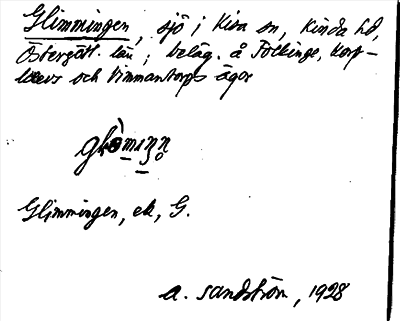 Glimmingen, sjö i Kisa sn, Kinda hd,
Östergötl. län; beläg. å Föllinge,
och Vimmanstorps ägor
Glimmingen, ek, G.
A. Sandström, 1928